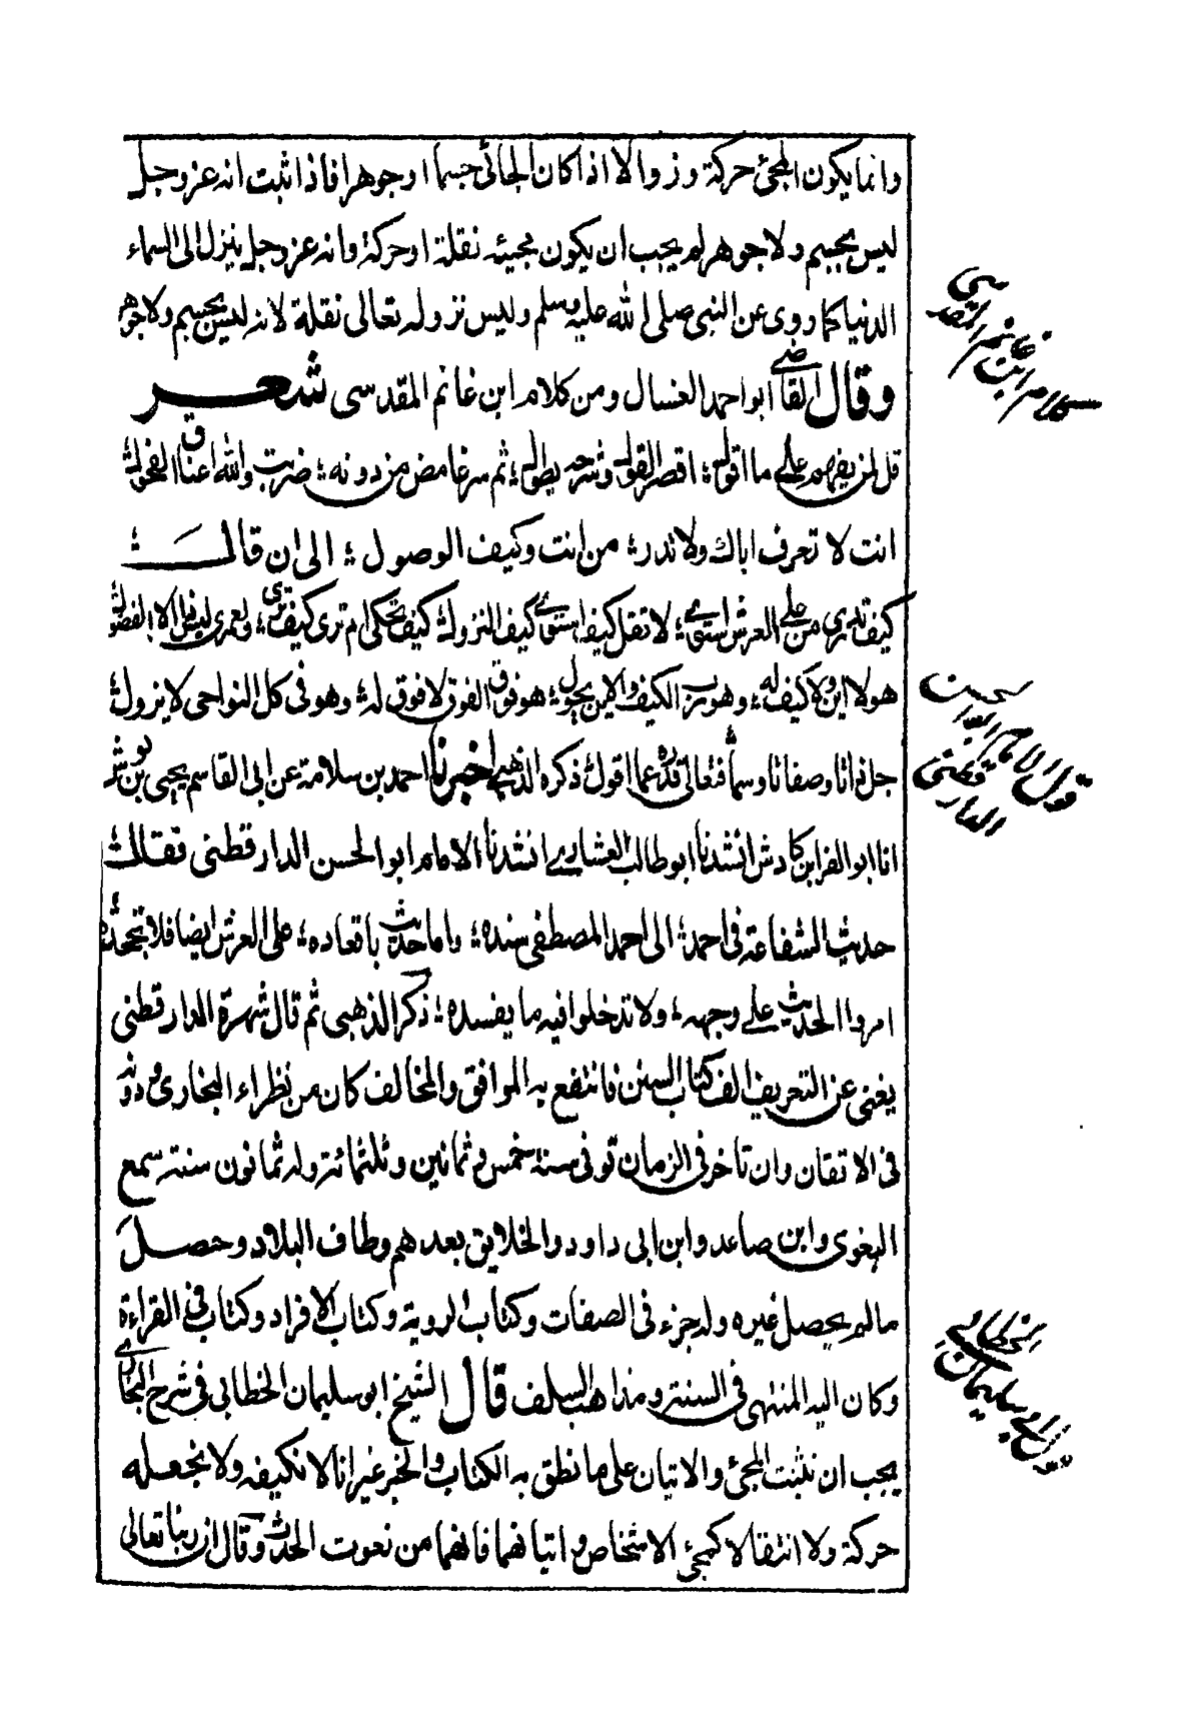 وانما يكون المجئ حركة وزوالا اذا كان الجائى جسما او جوهرا فاذا ثبت انه عز وجل
ليس بجسم ولا جوهر لم يجب ان يكون مجيئه نقلة او حركة وانه عز وجل ينزل الى السماء
الدنيا كما روى عن النبى صلى الله عليه وسلم وليس نزوله تعالى نقلة لانه ليس بجسم ولا جوهر
وقال القاضى ابو احمد العسال ومن كلام ابن غانم المقدسى شعر
قل لمن يفهم على ما اقول ؛ اقصر القول وشرحه يطول ؛ ثم سر غامض من دونه ؛ ضربت والله اعناق الفحول ؛
انت لا تعرف اياك ولا تدر ؛ من انت وكيف الوصول ؛ الى ان قال ؛
كيف تدرى من على العرش استوى ؛ لا تقل كيف استوى كيف النزول ؛ كيف تحكى ام ترى كيف ترى ؛ ولعمرى ليس ذا الا الفضول ؛
هو لا اين ولا كيف له ؛ وهو رب الكيف والاين يحول ؛ هو فوق الفوق لا فوق له ؛ وهو فى كل النواحى لا يزول ؛
جل ذاتا وصفاتا وسما ؛ فتعالى قدره عما اقول ؛ ذكره الذهبى اخبرنا احمد بن سلامة عن ابى القاسم يحيى بن بوش
انا ابو العز ابن كادش انشدنا ابو طالب العشارى انشدنا الامام ابو الحسن الدارقطنى فقال ؛
حديث الشفاعة فى احمد ؛ الى احمد المصطفى سنده ؛ واما حديث باقعاده ؛ على العرش ايضا فلا تجحده
امروا الحديث على وجهه ؛ ولا تدخلوا فيه ما يفسده ؛ ذكره الذهبى ثم قال شهرة الدارقطنى
يغنى عن التعريف الف كتاب السنن فانتفع به الموافق والمخالف كان من نظراء البخارى ودونه
فى الاتقان وان تاخر فى الزمان توفى سنة خمس وثمانين وثلثمائة وله ثمانون سنة سمع
البغوى وابن صاعد وابن ابى داود والخلايق بعدهم وطاف البلاد وحصل
مالم يحصل غيره وله جزء فى الصفات وكتاب الروية وكتاب الافراد وكتاب فى القراءة
وكان اليه المنتهى فى السنة ومذاهب السلف قال الشيخ ابو سليمان الخطابى فى شرح البخارى
يجب ان نثبت المجئ والاتيان على ما نطق به الكتاب والخبر غير انا لا نكيفه ولا نجعله
حركة ولا انتقالا كمجئ الاشخاص واتيانهما فانهما من نعوت الحدث وقال ان ربنا تعالى
كلام ابن غانم المقدسى
قول الامام ابى الحسن الدارقطنى
قول ابى سليمان الخطابى